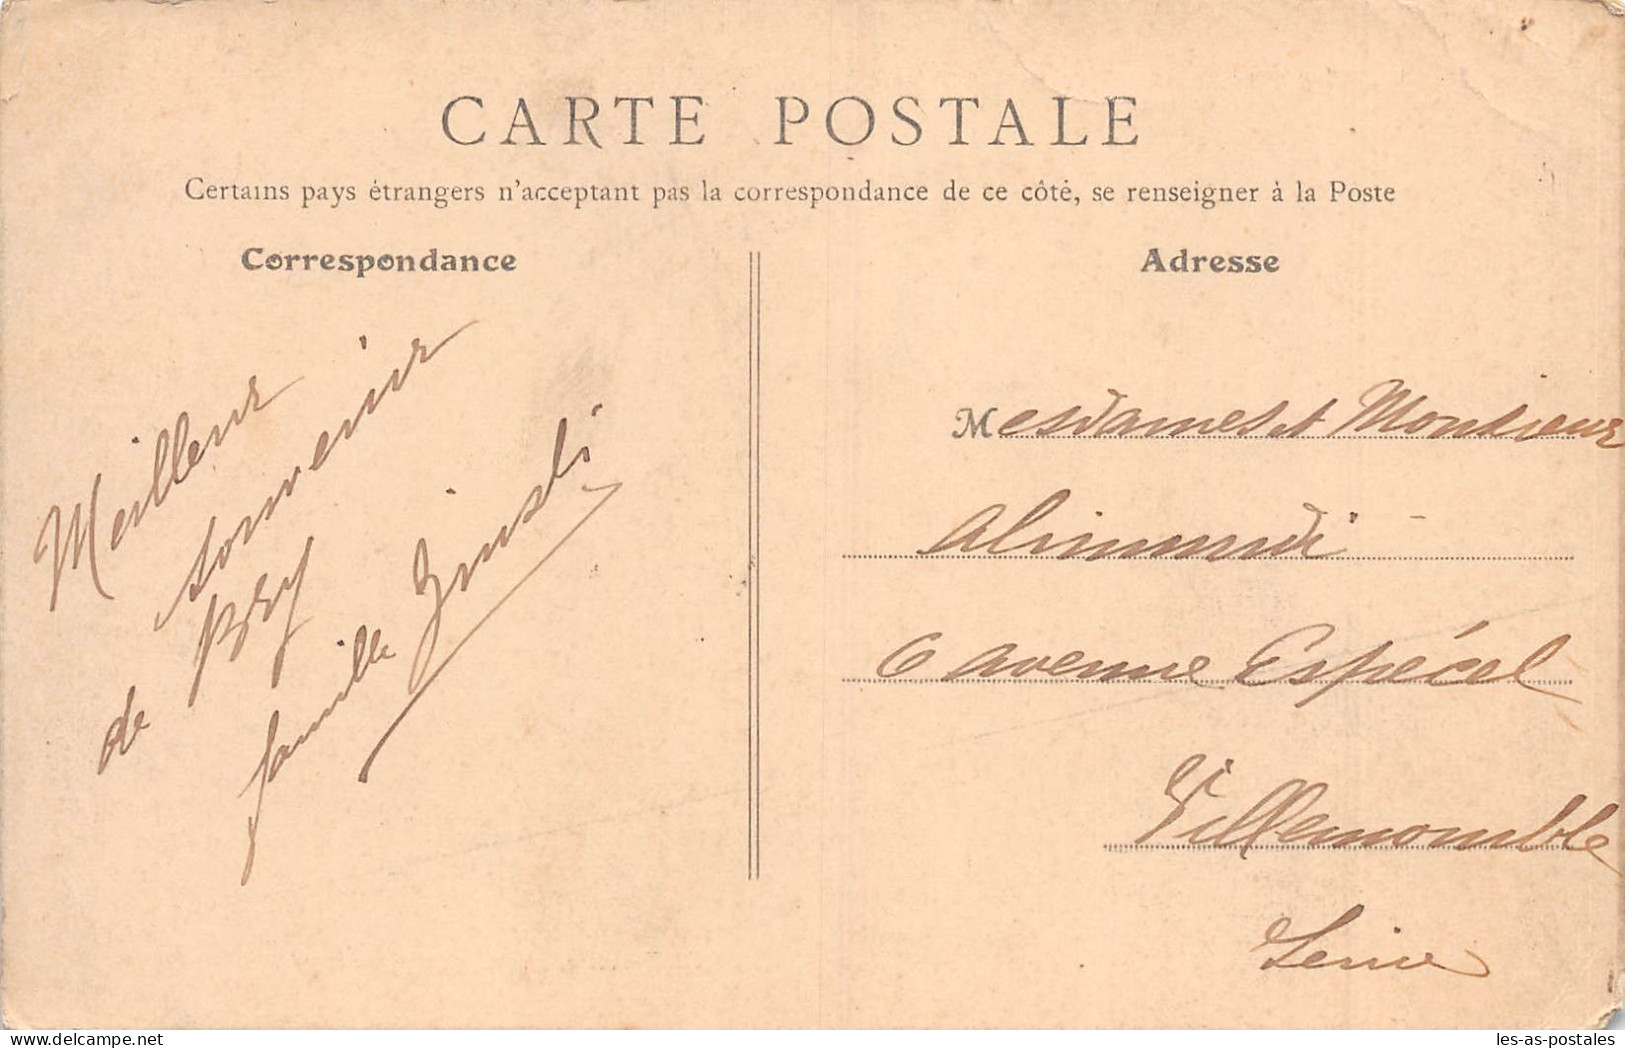 CARTE POSTALE
Certains pays étrangers n'acceptant pas la correspondance de ce côté, se renseigner à la Poste
Correspondance
Adresse
Meilleur
souvenir
de Bry
famille
Mesdames et Monsieur
Alimundi
6 avenue Espécel
Villemomble
Seine
les-as-postales